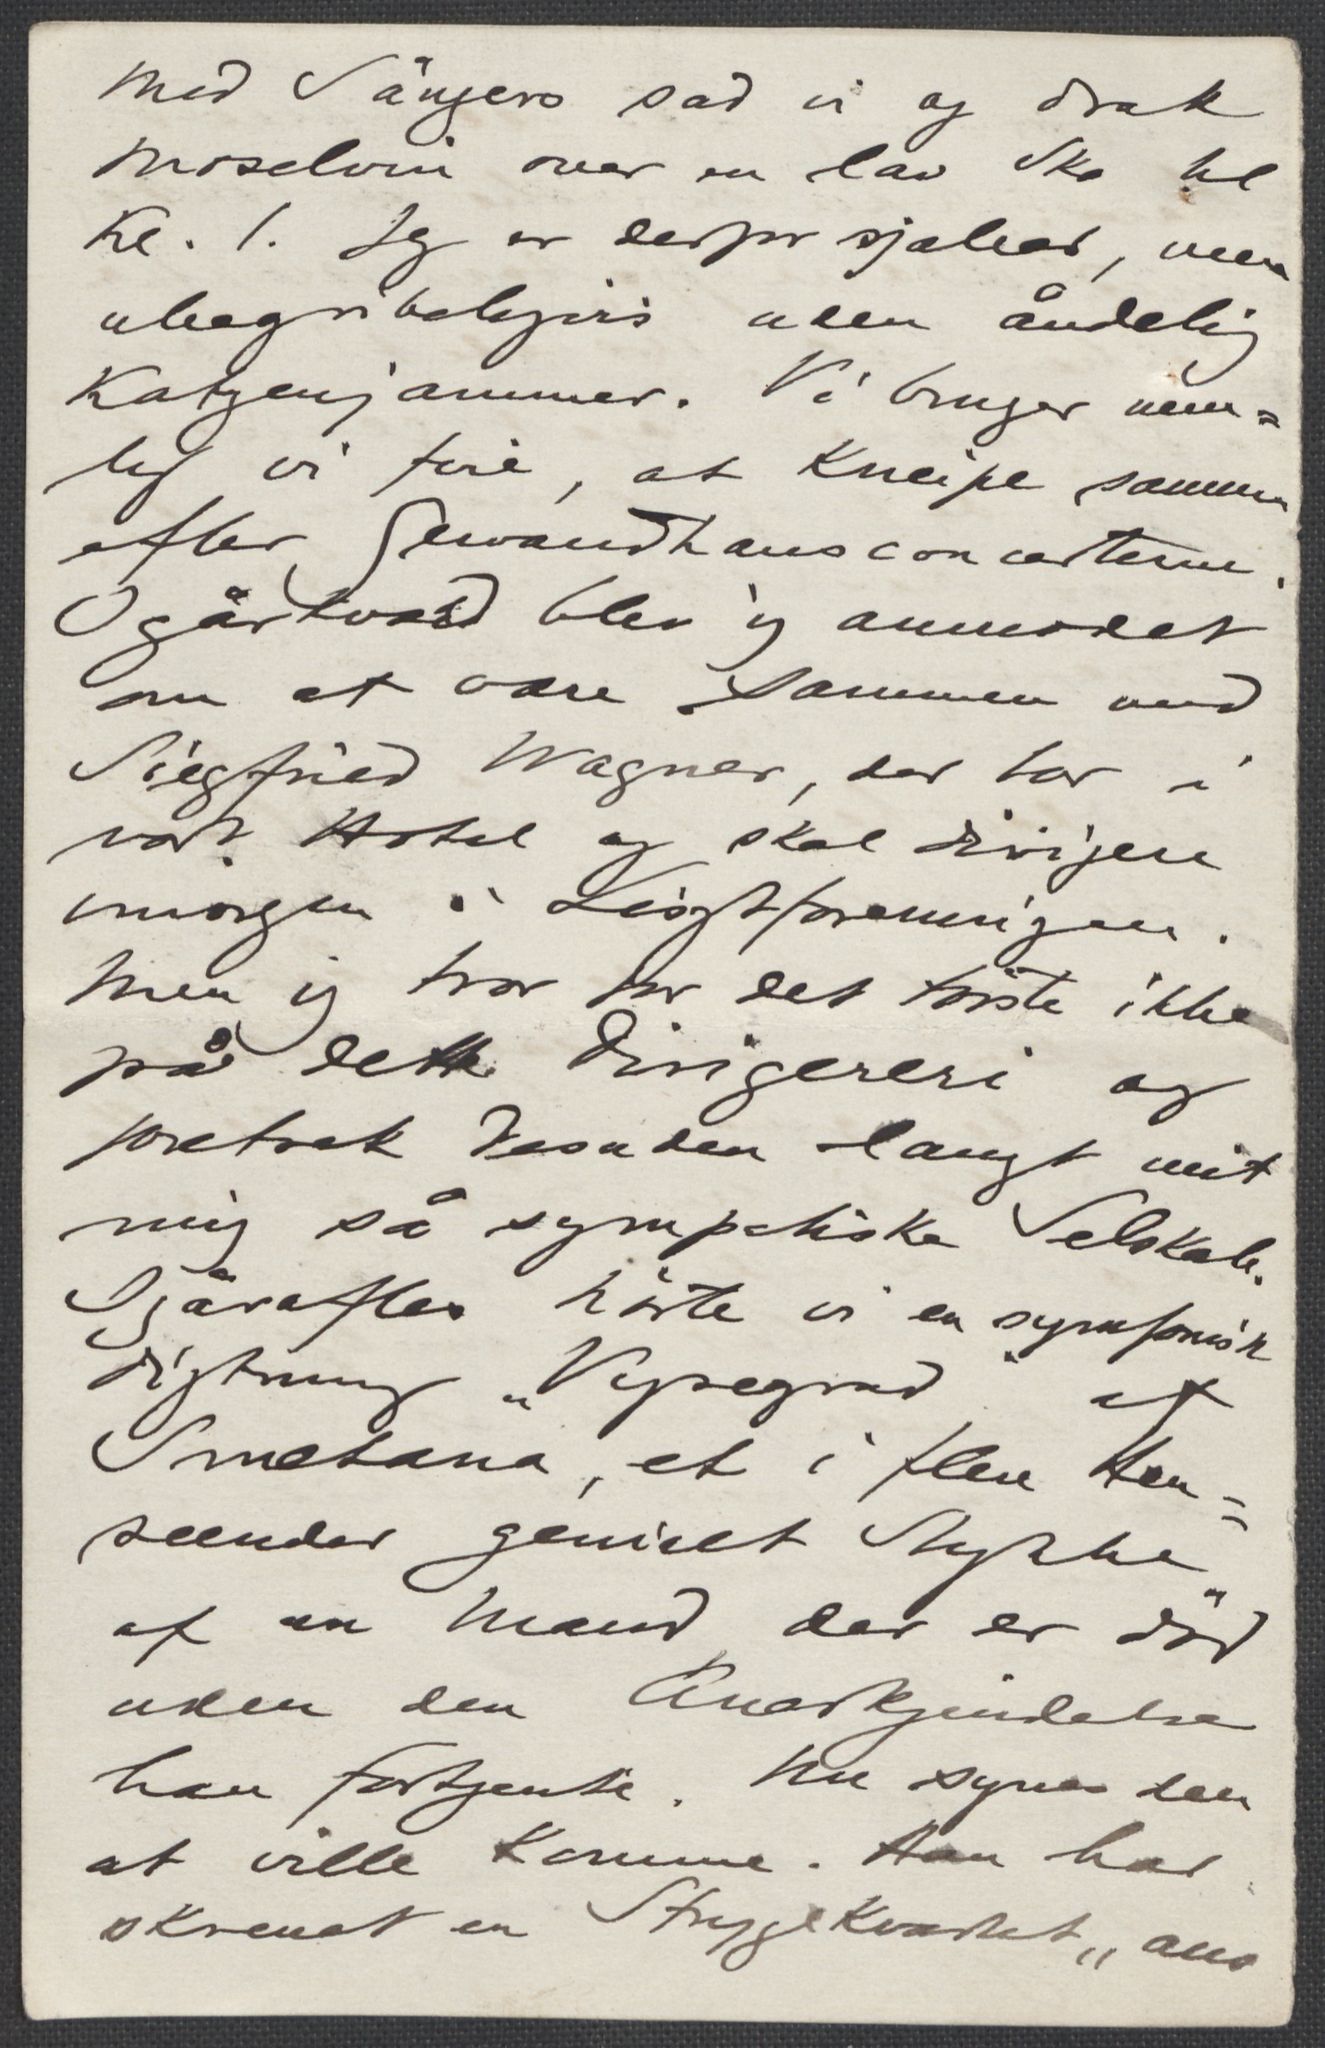 med Sängers sad vi og drak
Moselvin over en lav Sko til
Kl. 1. Jeg er derfor sjaber, men
ubegribeligvis uden åndelig
Katzenjammer. Vi bruger nem=
lig vi fire, at Kneipe sammen
efter Gewandhausconcerterne.
Igårkvæld blev jeg anmodet
om at være sammen med
Siegfried Wagner, der bor i
vort Hotel og skal dirigere
imorgen i Lisztforeningen.
Men jeg tror for det første ikke
på dette Dirigereri og
foretrak desuden langt mit
mig så sympatiske Selskab.
Igåraftes hørte vi en symfonisk
Digtning „Vysegrad" af
Smetana, et i flere Hen=
seender genialt Stykke
af en Mand der er død
uden den Anerkjendelse
han fortjente. Nu synes den
at ville komme. Han har
skrevet en Strygekvartet „aus